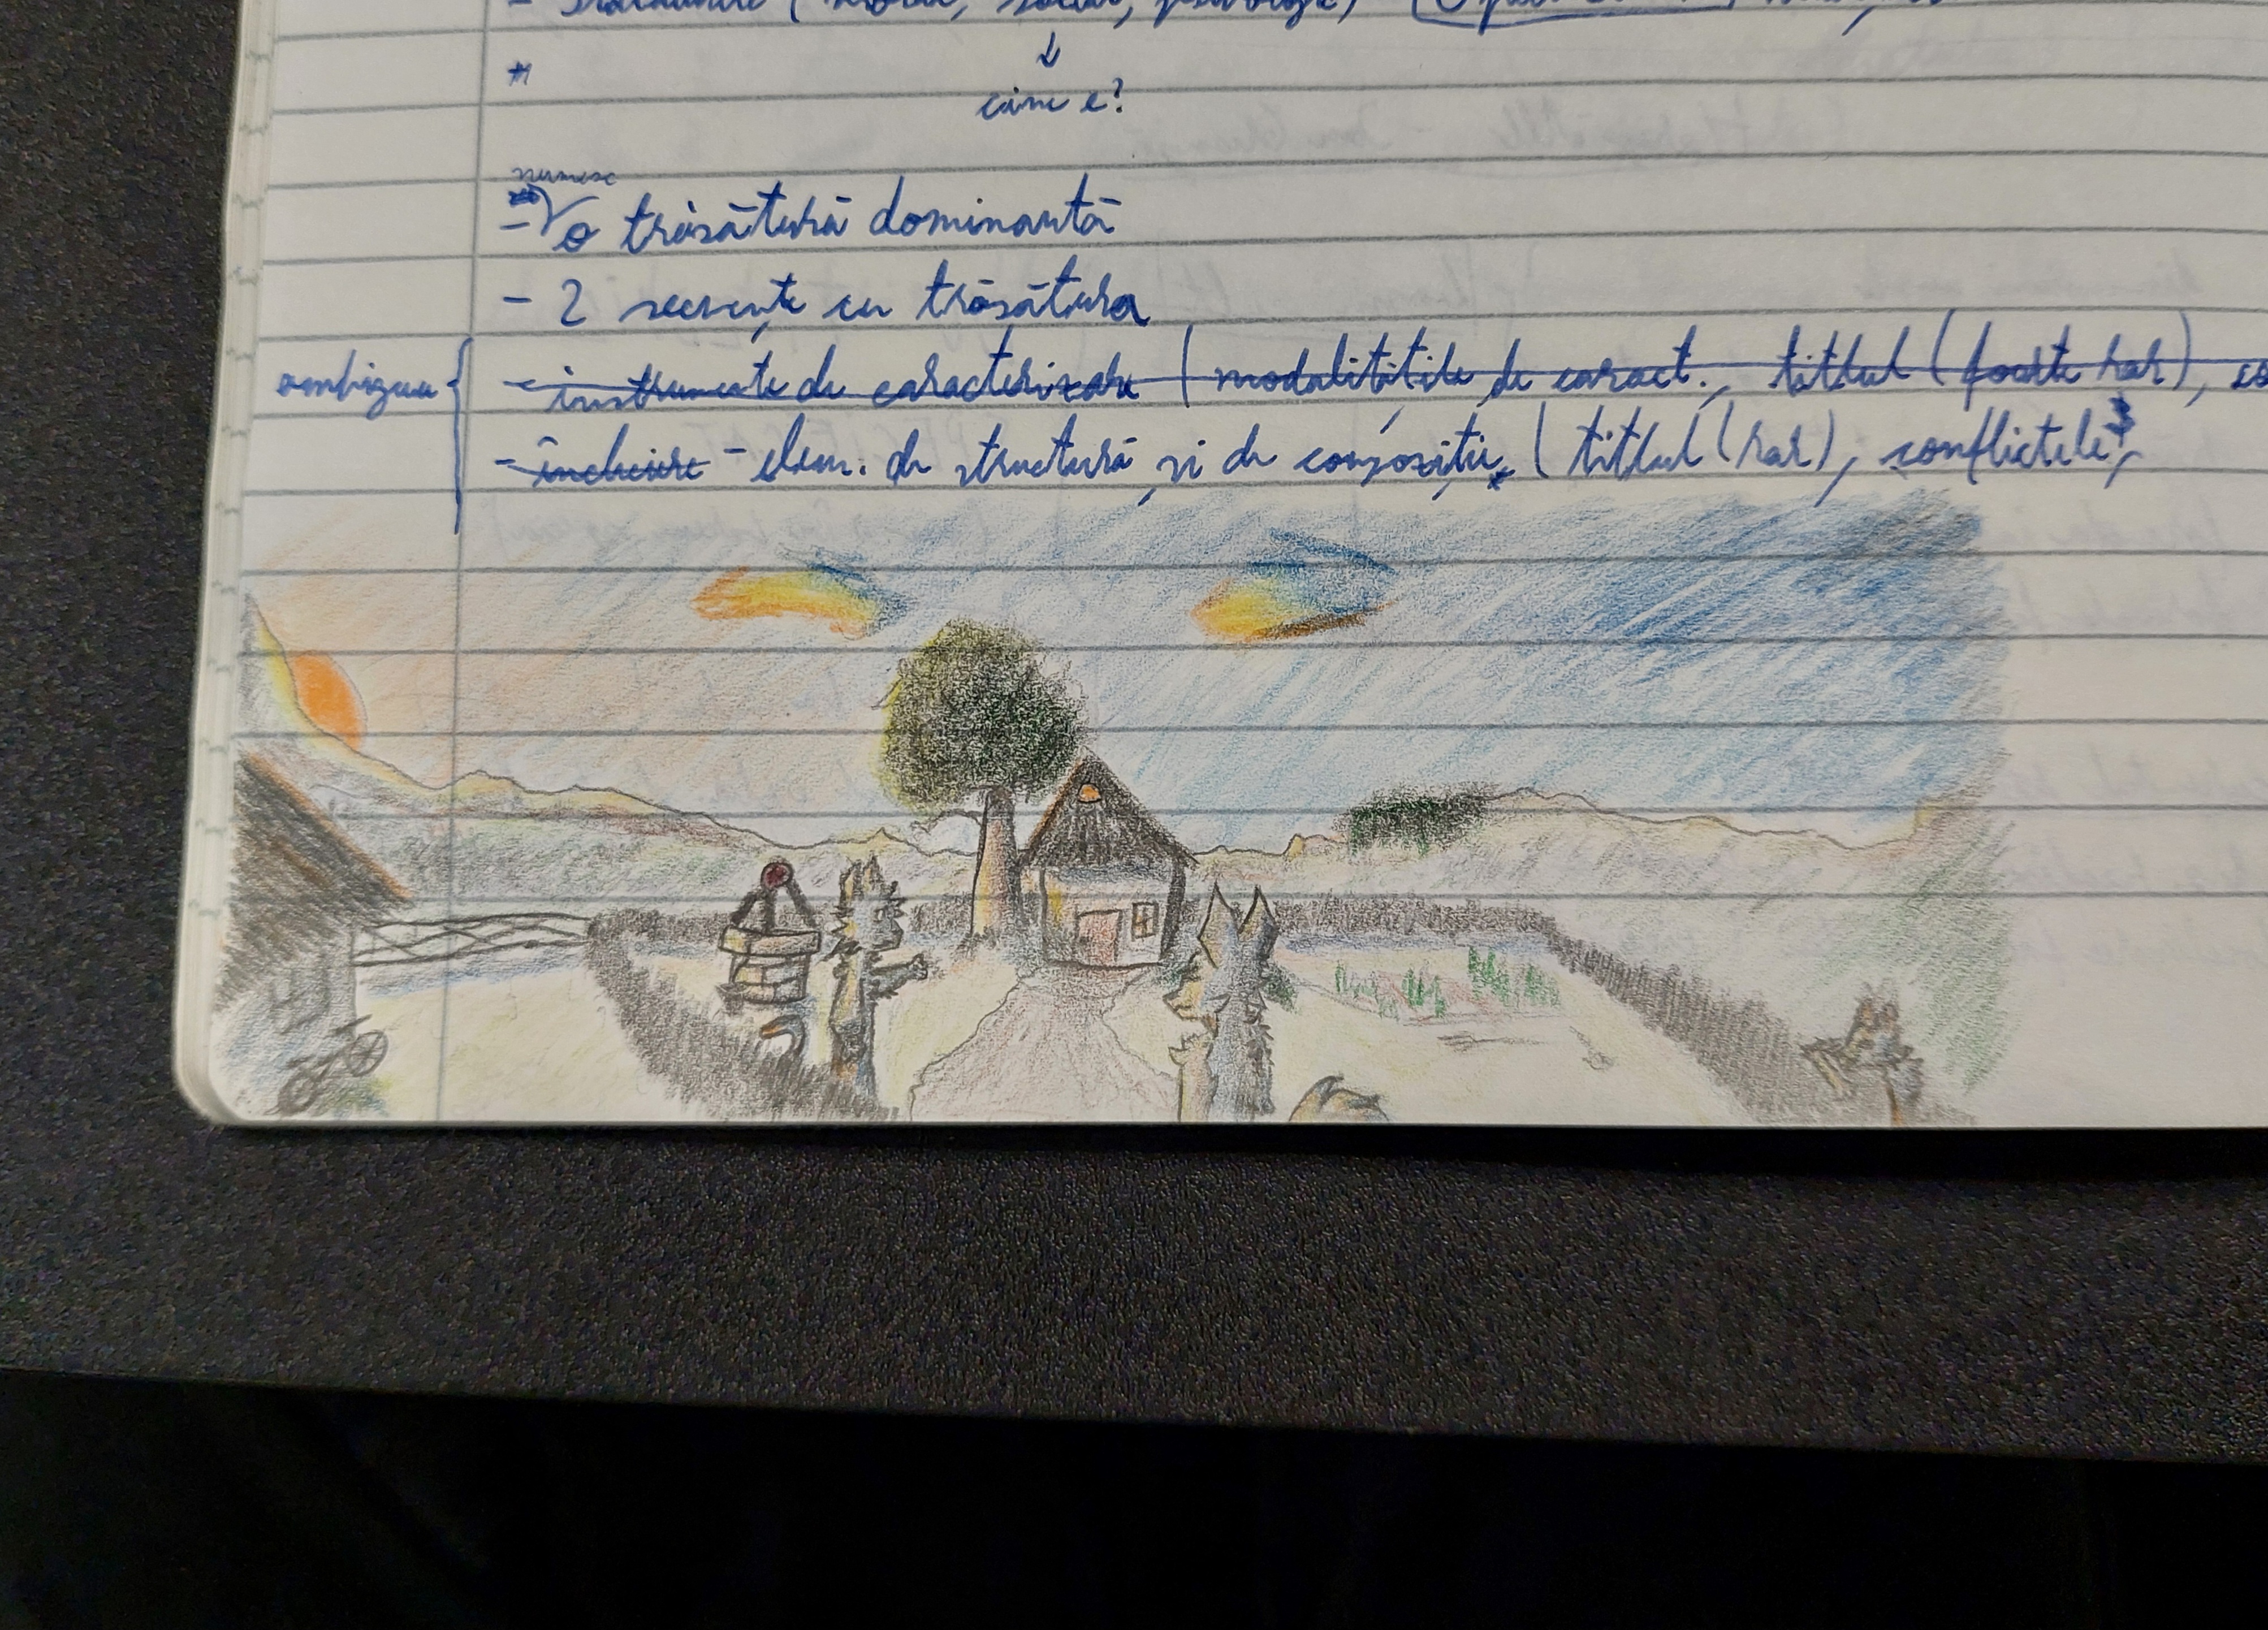 (moral, social, psihologic)
*
cine e?
numesc
- o trăsătură dominantă
- 2 secvențe cu trăsătura
ambiguu { - instrumente de caracterizare (modalitățile de caract., titlul (foarte rar),
- încheiere - elem. de structură și de compoziție, (titlul (rar), conflictele,